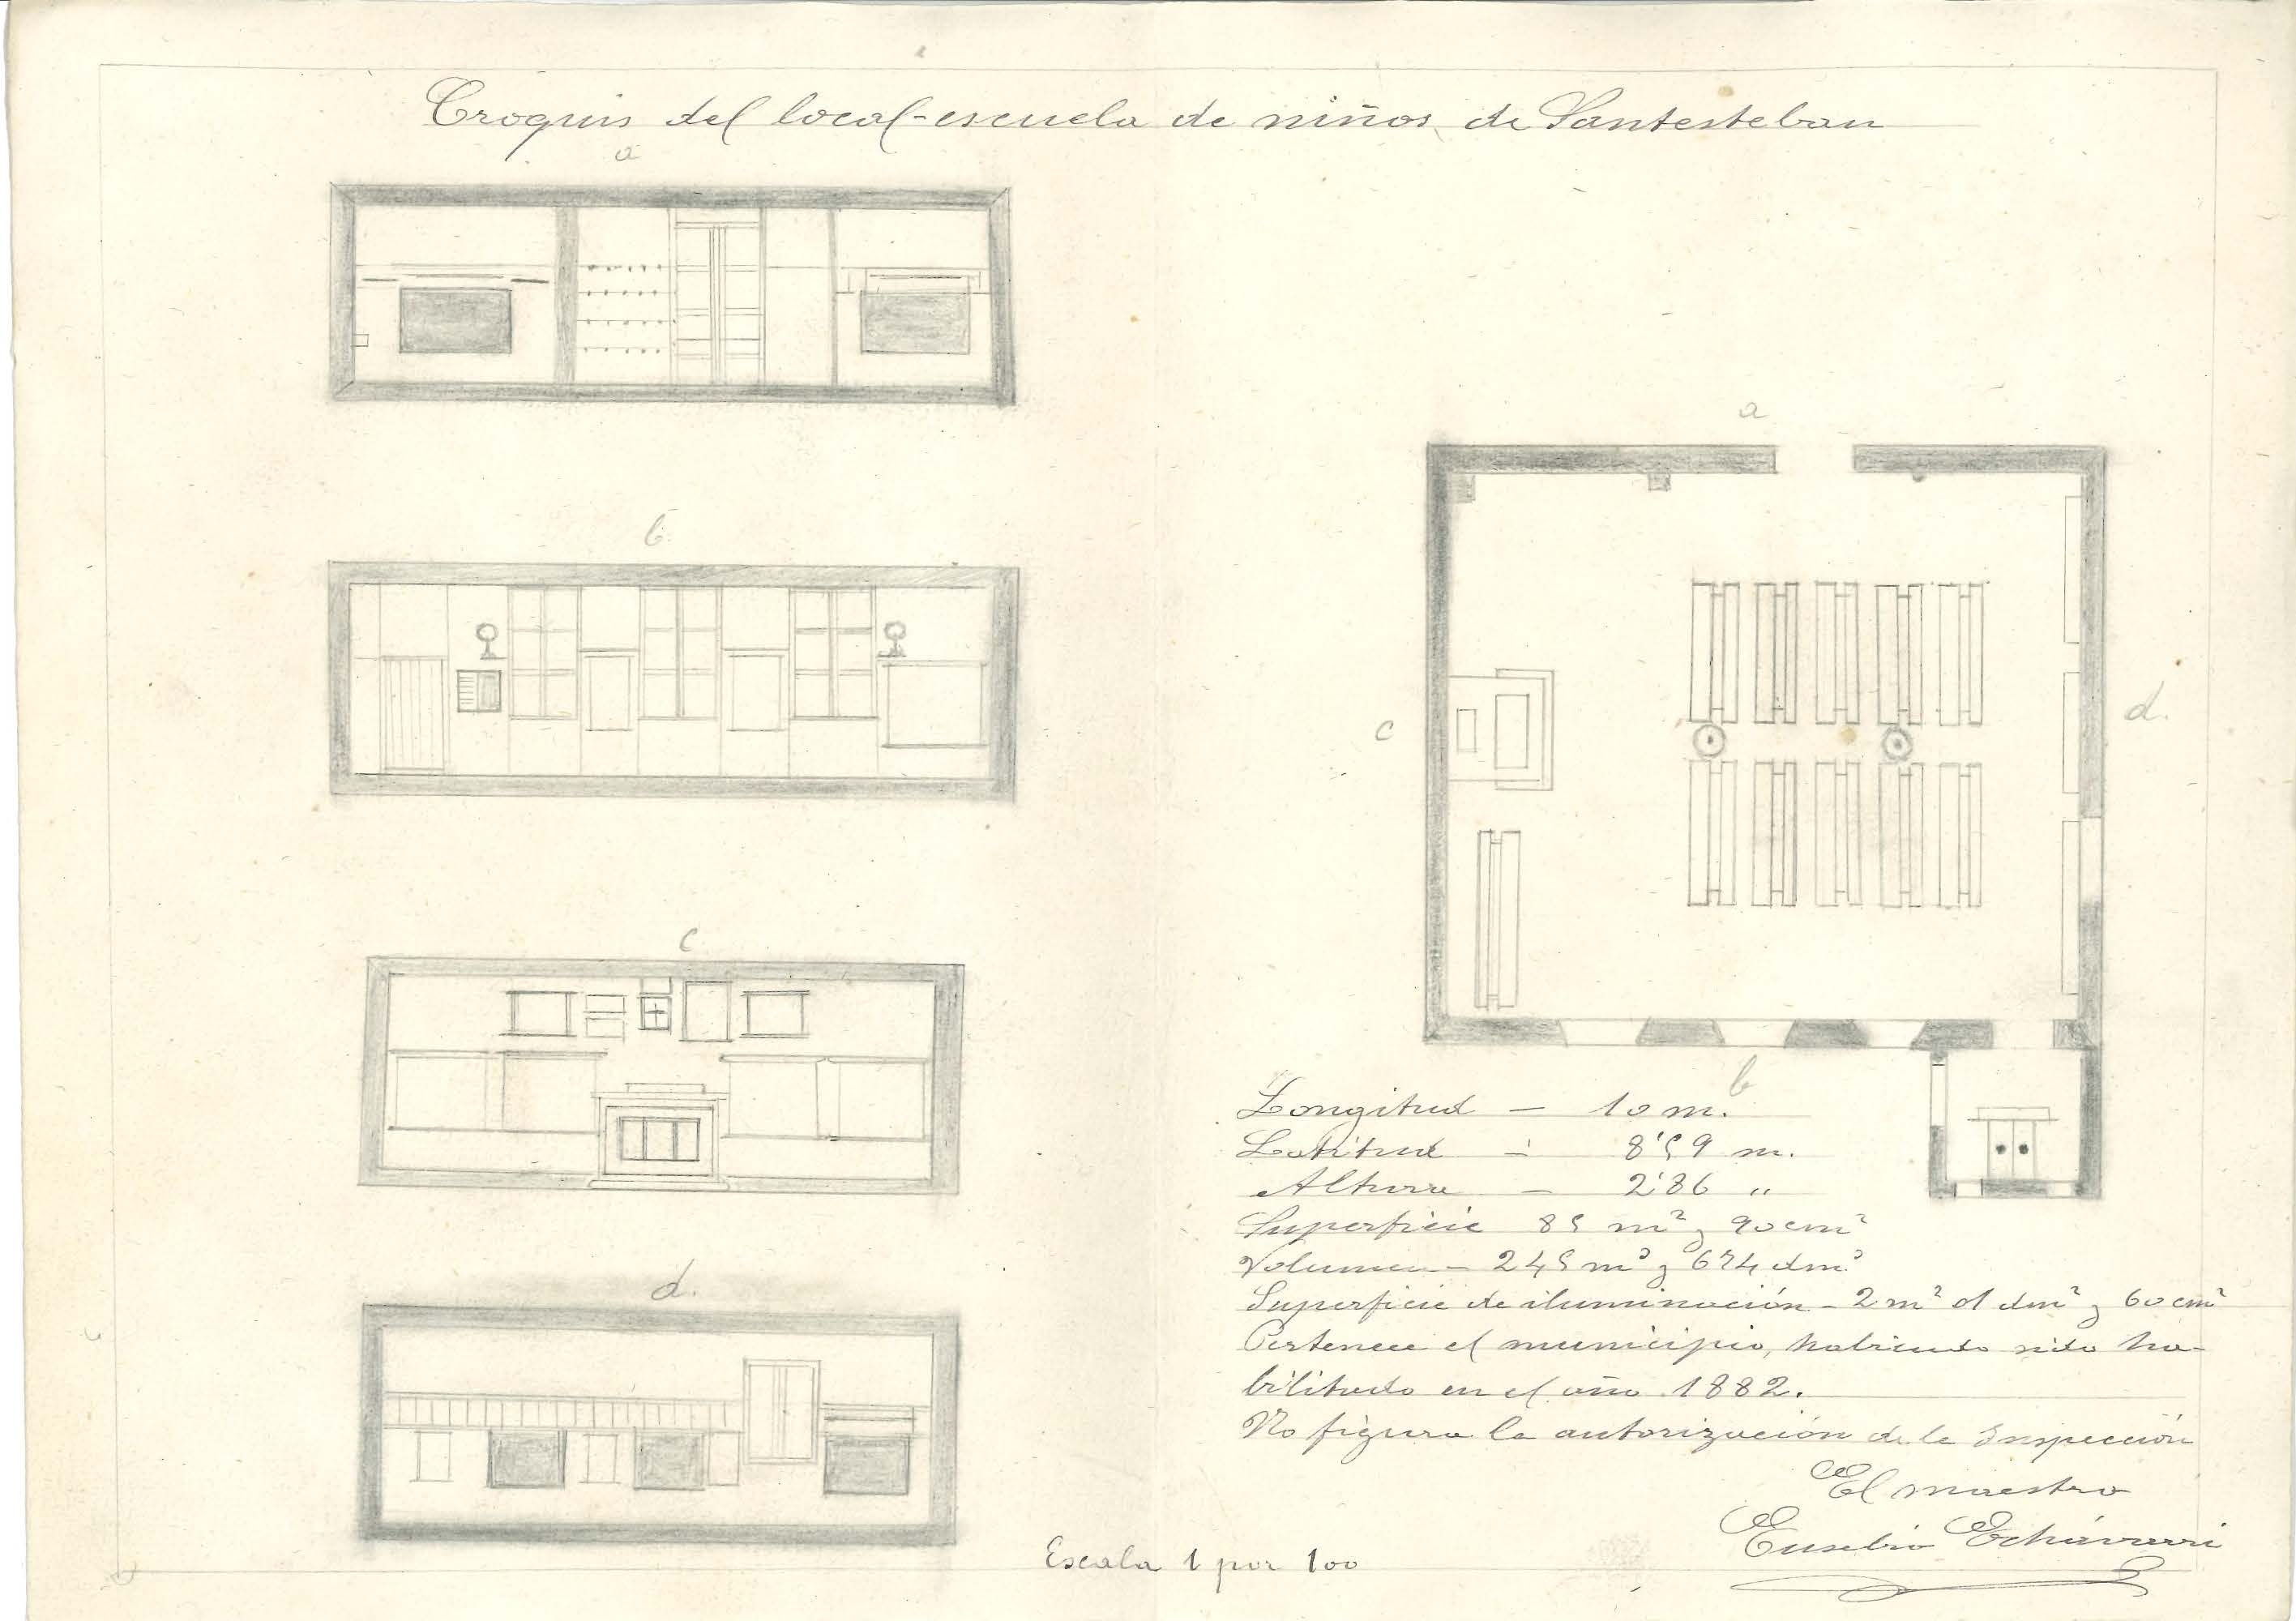 Croquis del local-escuela de niños de Santesteban
a
b
c
d.
a
c
d.
b
Longitud – 10 m.
Latitud – 8'59 m.
Altura – 2'86 "
Superficie 85 m² y 90 cm²
Volumen – 245 m³ y 674 dm³
Superficie de iluminación – 2 m² 01 dm² y 60 cm²
Pertenece el municipio, habiendo sido ha-
bilitado en el año 1882.
No figura la autorización de la Inspección
El maestro
Eusebio Echávarri
Escala 1 por 100